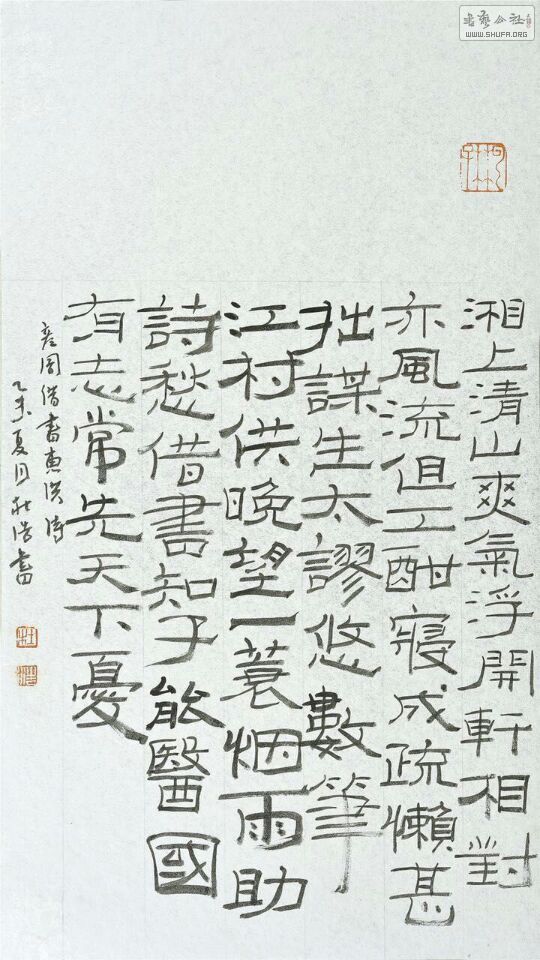 書藝公社
WWW.SHUFA.ORG
湘上清山爽氣浮開軒相對
亦風流但工酣寢成疏懶甚
拙謀生太謬悠數筆
江村供晚望一蓑烟雨助
詩愁借書知子能醫國
有志常先天下憂
彦周借書惠洪詩
乙未夏月杜浩書
杜
浩